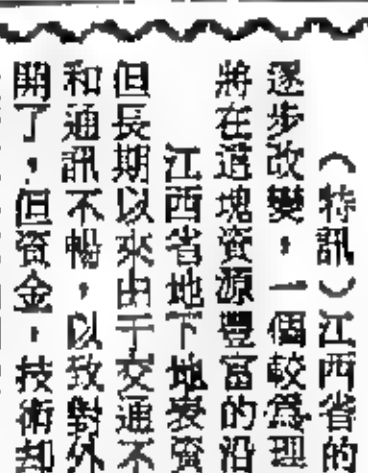 （特訊）江西省的
逐步改變，一個較爲理
將在這塊資源豐富的沿
江西省地下地表資
但長期以來由于交通不
和通訊不暢，以致對外
開了，但資金，技術却